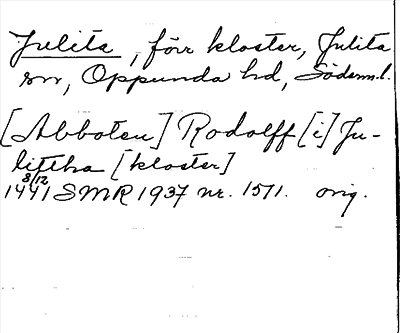 Julita, förr kloster, Julita
sn, Oppunda hd, Söderm.l.
[Abboten] Rodolff [i] Ju-
littha [kloster]
8/12
1441 SMR 1937 nr. 1511. orig.